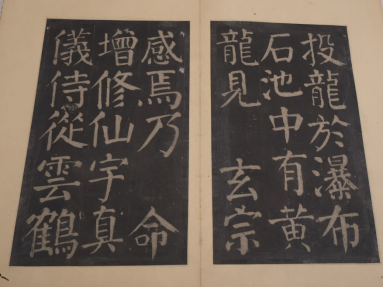 投龍於瀑布
石池中有黄
龍見　玄宗
感焉乃　命
增修仙宇真
儀侍從雲鶴